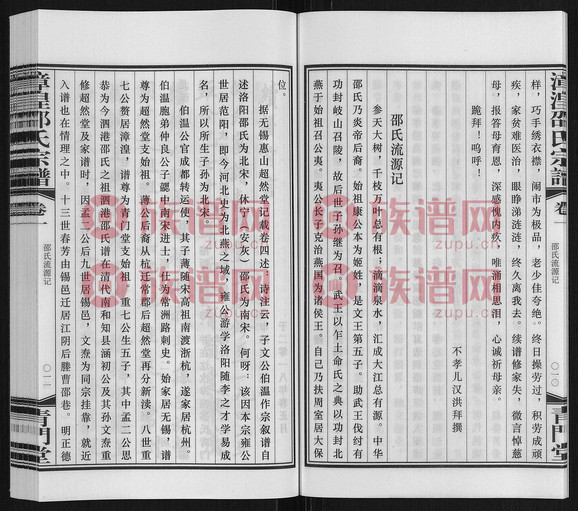 漳湟邵氏宗谱
卷一
邵氏流源记
〇一〇
青门堂
样，巧手绣衣襟，闹市为极品，老少佳夸绝。终日操劳过，积劳成顽
疾，家贫难医治，眼睁涕涟涟，终久离我去。续谱修家失，微言悼慈
母，报答母育恩，深感愧内疚，唯涌相思泪，心诚祈母亲。
跪拜！呜呼！
不孝儿汉洪拜撰
邵氏流源记
参天大树，千枝万叶总有根；滴滴泉水，汇成大江总有源。中华
邵氏乃炎帝后裔。始祖康公本为姬姓，是文王第五子。助武王伐纣有
功封岐山召陵，故后世子孙继为召。武王以乍土命氏之典以功封北
燕于始祖召公夷。夷公长子克治燕国为诸侯王。自己乃扶周室居大保
位。
据无锡惠山超然堂记载卷四述，请注云，子文公伯温作宗叙谱自
述洛阳邵氏为北宋，休宁（安灰）邵氏为南宋。何呀：该因本宗雍公
世居范阳，即今河北史为北燕之域，雍公游学洛阳随李之才学易成
名，所以所生子孙为北宋。
伯温公官成都转运使，其子薄随宋高祖南渡浙杭，遂家居杭州。
伯温胞弟仲良公子勰中南宋进士，仕为常洲路刺史。始家居无锡，谱
尊为超然堂支始祖。薄公后裔从杭迁常郡后超然堂再分新渎。八世重
七公赘居漳湟，谱尊为青门堂支始祖，重七公生五子，其中孟二公思
恭为今泗港邵氏之祖泗港邵氏谱在清代南和知县涵初公及其孙文焘重
修超然堂及家谱时，因孟二公后九世居锡邑，文焘为同宗挂靠，就近
入谱也在情理之中。十三世春芳由锡邑迁居江阴后塍曹邵巷。明正德
漳湟邵氏宗谱
卷一
邵氏流源记
〇一一
青门堂
族谱网
zupu.cn
族谱网
zupu.cn
族谱网
zupu.cn
族谱网
zupu.cn